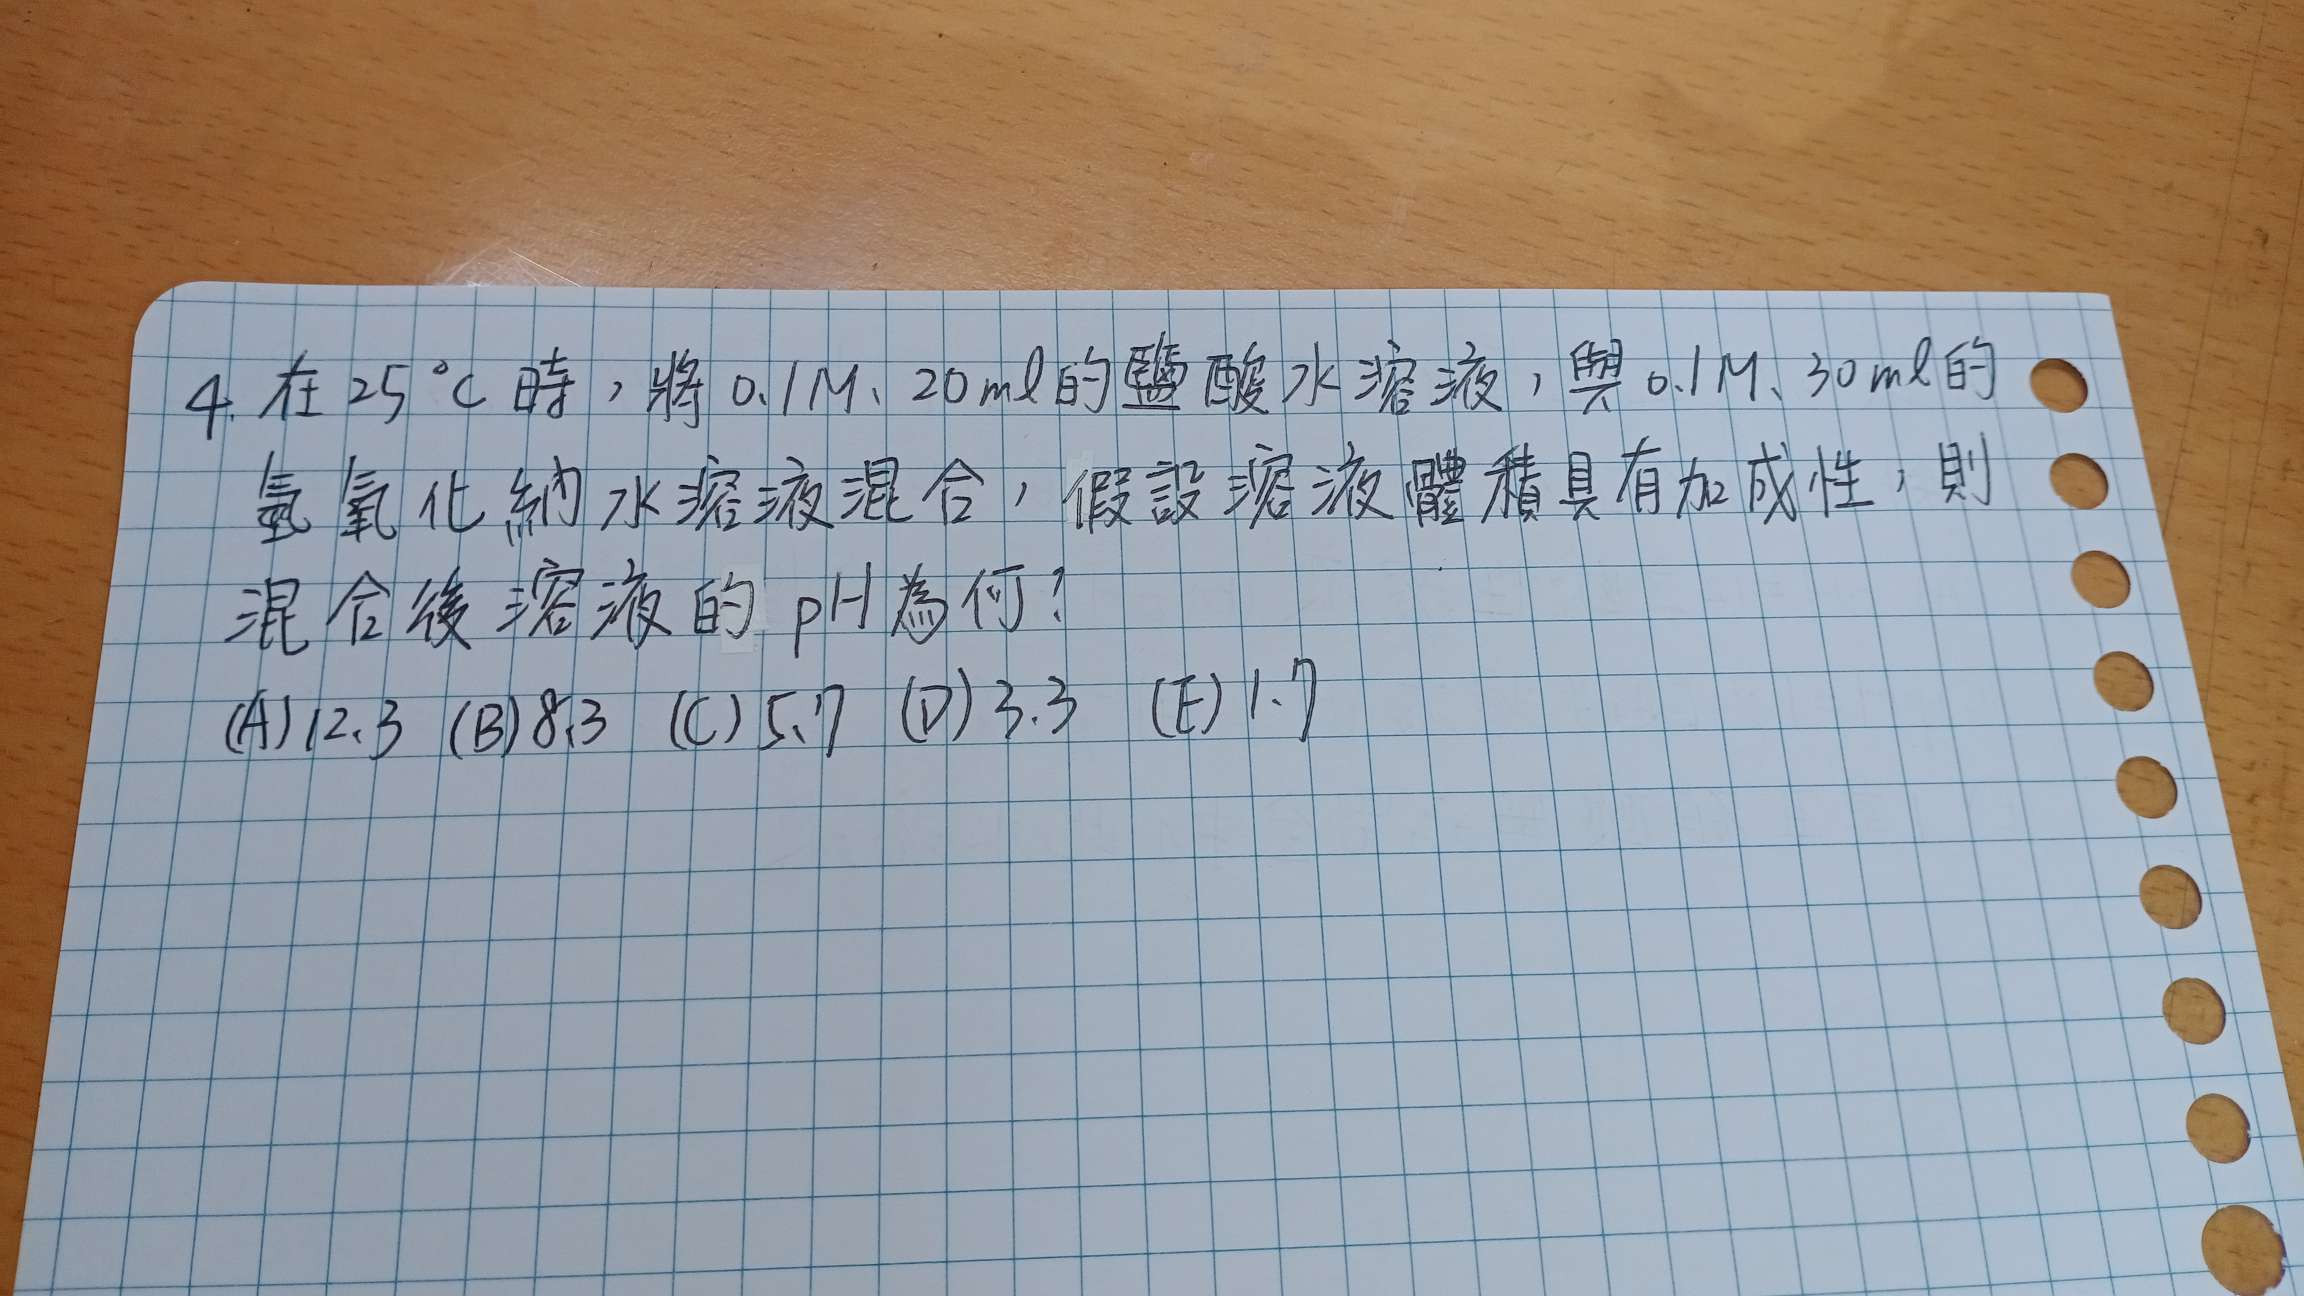 4. 在25°C時，將0.1M、20ml的鹽酸水溶液，與0.1M、30ml的
氫氧化納水溶液混合，假設溶液體積具有加成性，則
混合後溶液的pH為何？
(A)12.3 (B)8.3 (C)5.7 (D)3.3 (E)1.7